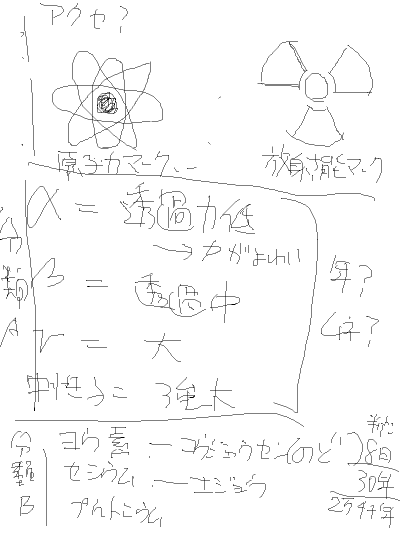 アクセ?
原子力マーク 放射能マーク
分類A
α = 透過力低
→ 力がよわい
β = 透過中
γ = 大
中性子 = 強大
年?
年?
分類B
ヨウ素 ー コウジョウセン(のど) 8日
セシウム ー
30年
プルトニウム